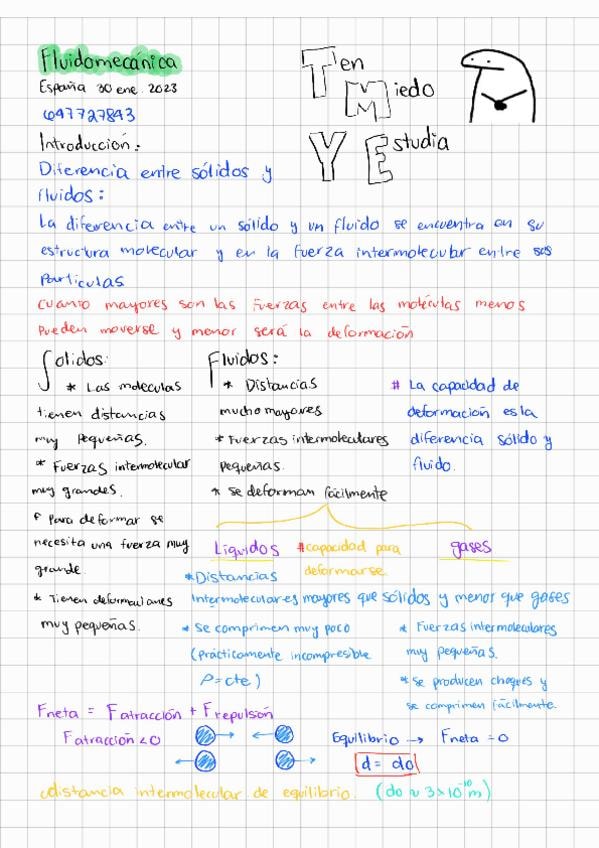 Fluidomecánica
España 30 ene. 2023
697727843
Ten
Miedo
Y Estudia
Introducción:
Diferencia entre sólidos y
fluidos:
La diferencia entre un sólido y un fluido se encuentra en su
estructura molecular y en la fuerza intermolecular entre sus
partículas
Cuanto mayores son las fuerzas entre las moléculas menos
pueden moverse y menor será la deformación
Solidos:
* Las moleculas
tienen distancias
muy pequeñas.
* Fuerzas intermolecular
muy grandes.
* Para deformar se
necesita una fuerza muy
grande.
* Tienen deformaciones
muy pequeñas.
Fluidos:
* Distancias
mucho mayores
* Fuerzas intermoleculares
pequeñas.
* se deforman fácilmente
# La capacidad de
deformación es la
diferencia sólido y
fluido.
Liquidos #capacidad para gases
deformarse.
* Distancias
Intermoleculares mayores que sólidos y menor que gases
* Se comprimen muy poco
(prácticamente incompresible
ρ=cte)
* Fuerzas intermoleculares
muy pequeñas.
* se producen choques y
se comprimen fácilmente.
Fneta = Fatracción + Frepulsón
Fatracción<0
Equilibrio → Fneta = 0
d = do
distancia intermolecular de equilibrio. (do ~ 3x10⁻¹⁰ m)